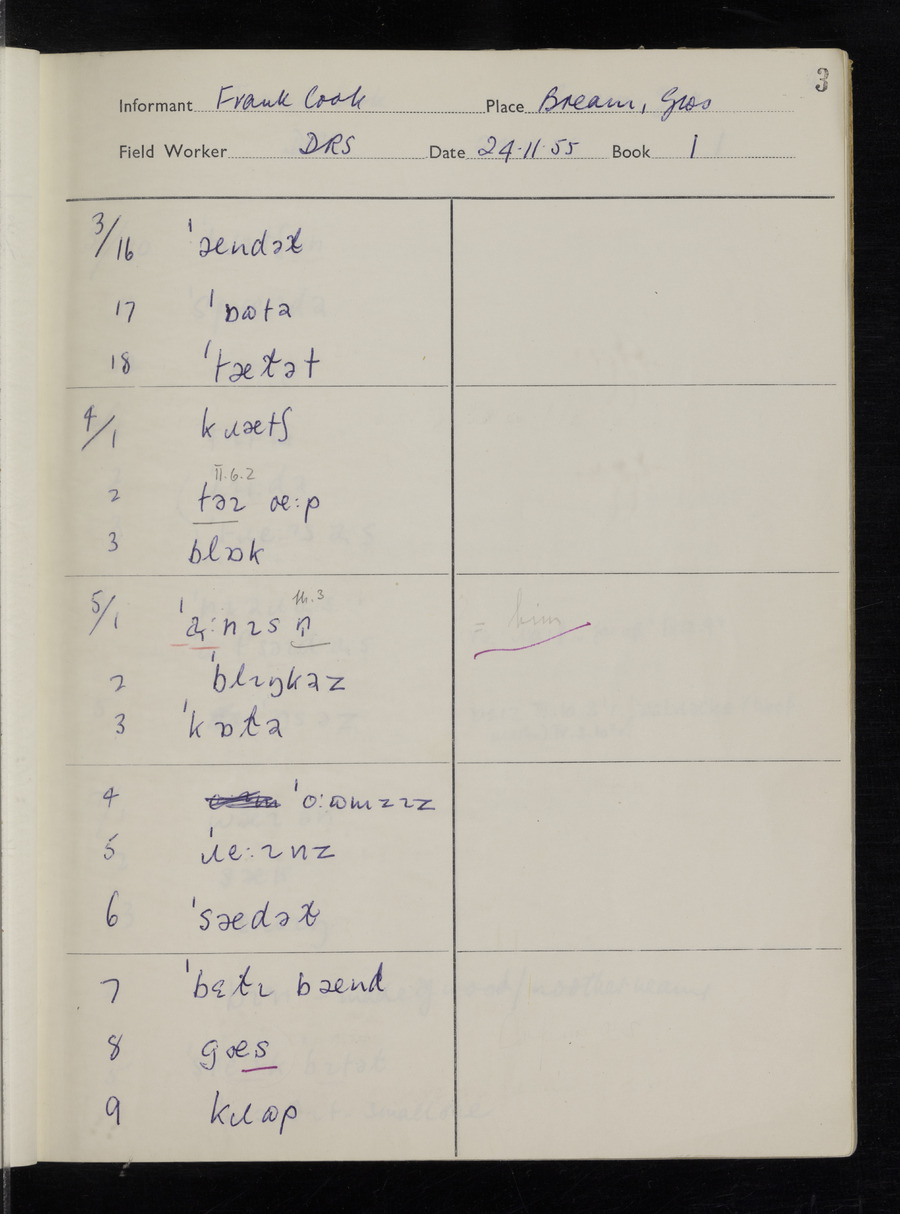 3
Informant Frank Cook Place Bream, Glos
Field Worker DRS Date 24·11·55 Book 1
3/16 ˈændəɫ
17 ˈɒɷtə
18 ˈtæɫət
4/1 kɹætʃ
II.6.2
2 təɪ œ:p
3 blɒk
5/1 III.3
= him
2 ˈblɪŋkəz
3 ˈkɒɫə
4 ˈo:ɷmzɪz
5 ˈɹe:ɪnz
6 ˈsædəɫ
7 ˈbɛɫɪ bænd
8 gæs
9 kɹɷp